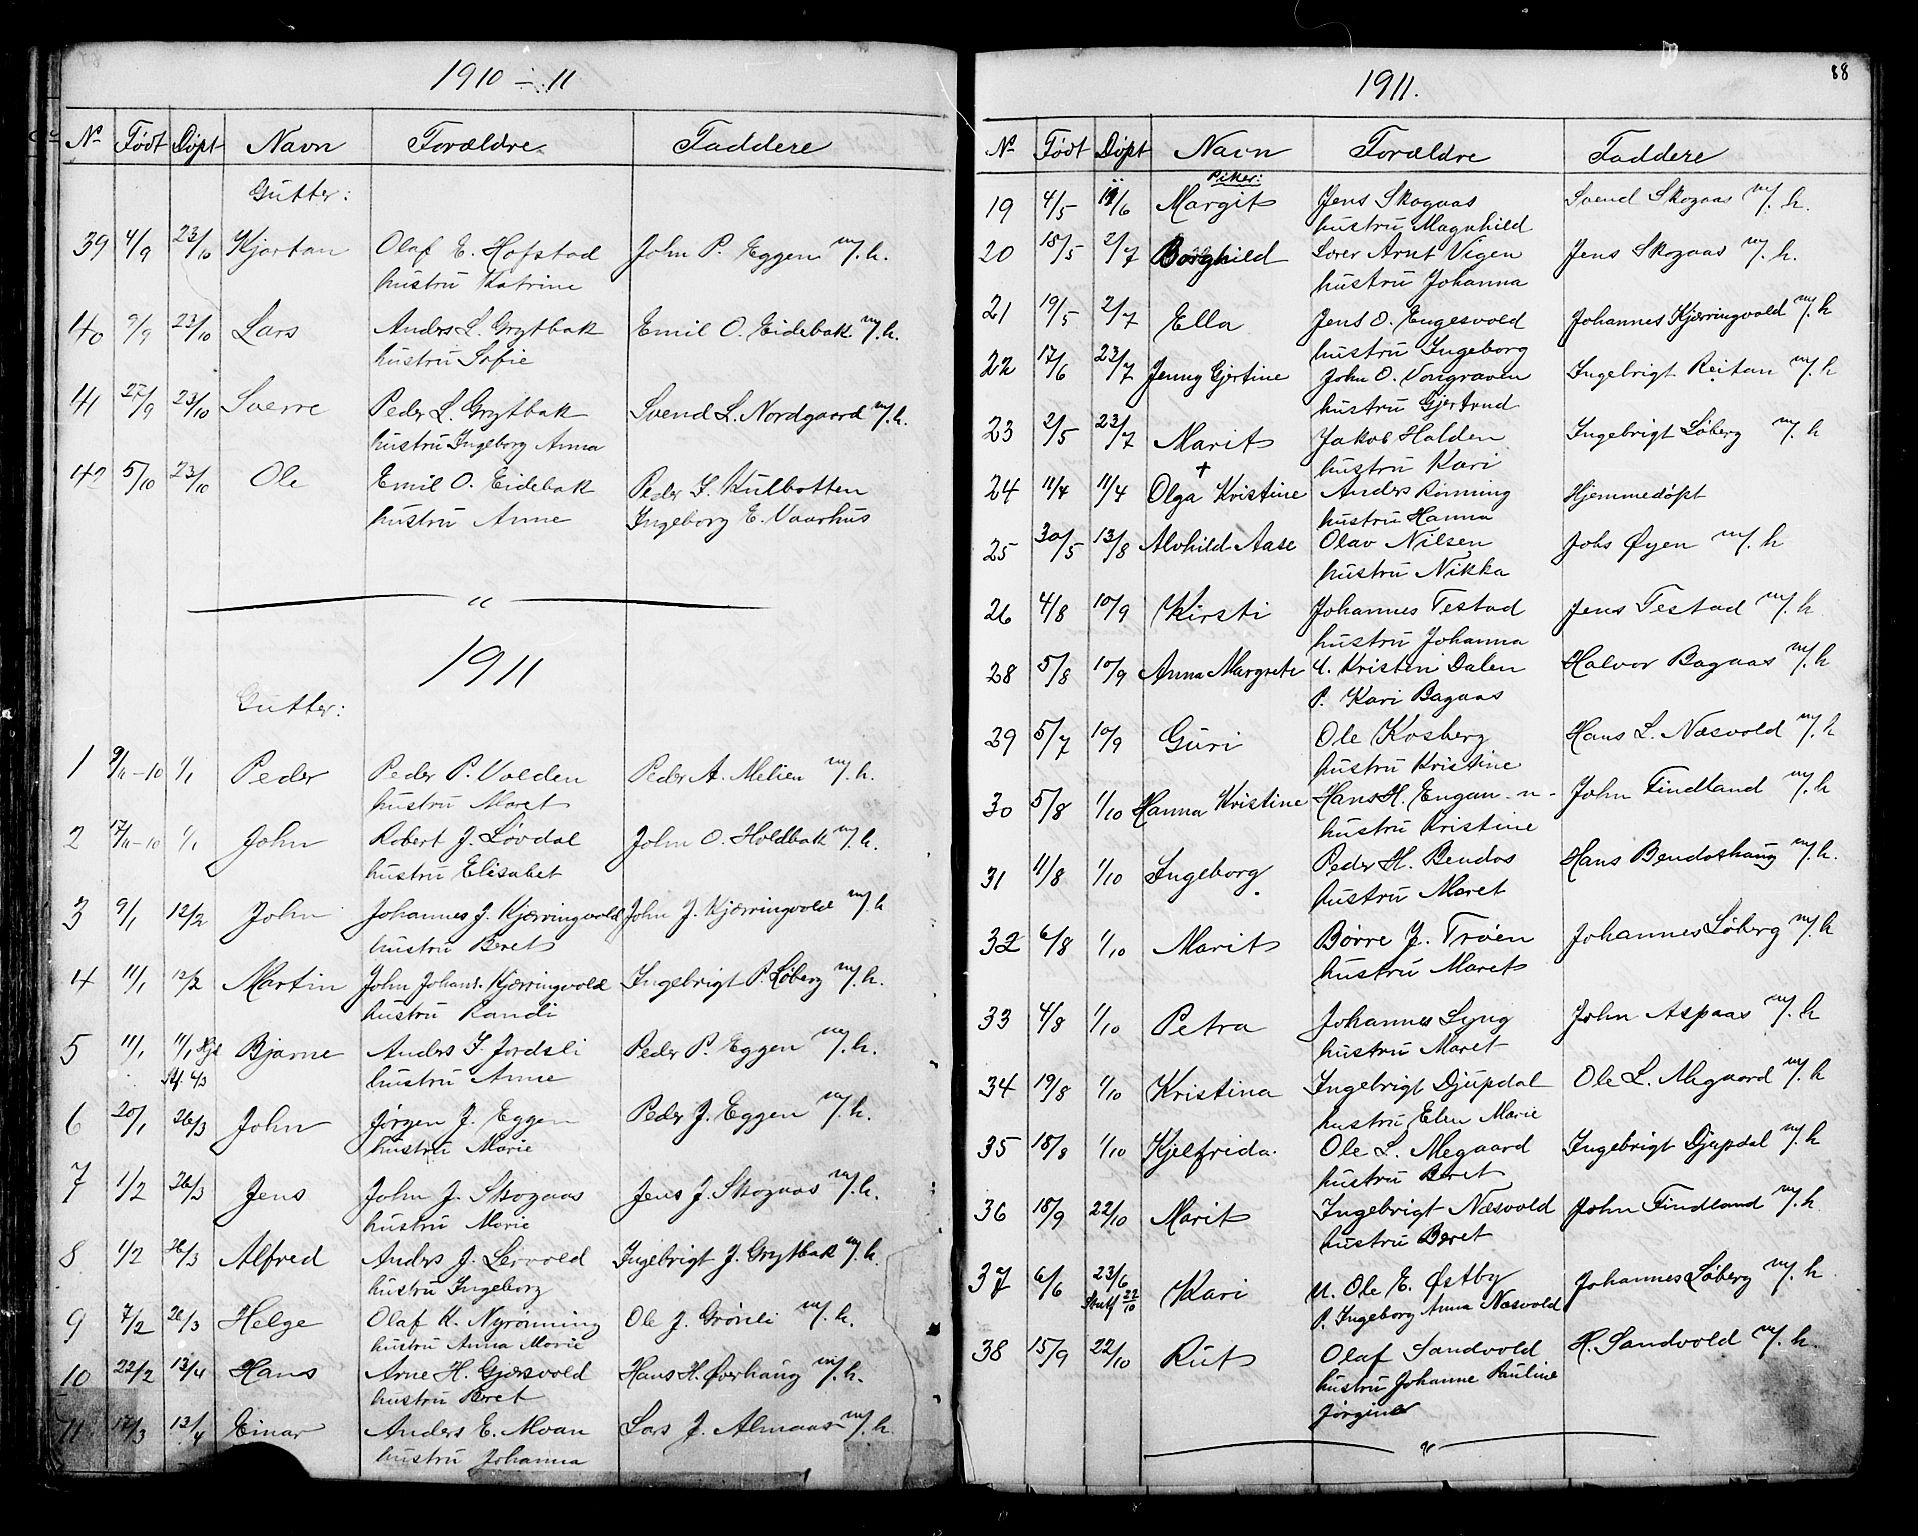 1910 – 11
Nº Født Døpt Navn Forældre Faddere
Gutter:
39 4/9 23/10 Kjartan Olaf E. Hofstad John P. Eggen m/. h.
hustru Katrine
40 9/9 23/10 Lars Anders L. Grytbak Emil O. Eidebak m/. h.
hustru Sofie
41 27/9 23/10 Sverre Peder L. Grytbak Svend L. Nordgaard m/. h.
hustru Ingeborg Anna
42 5/10 23/10 Ole Emil O. Eidebak Peder J. Kulbotten
hustru Anne Ingeborg E. Vaarhus
"
1911
Gutter:
1 9/11–10 1/1 Peder Peder P. Volden Peder A. Melien m/. h.
hustru Maret
2 17/11–10 1/1 John Robert J. Løvdal John O. Holdbak m/. h.
hustru Elisabet
3 9/1 12/2 John Johannes J. Kjærringvold John J. Kjærringvold m/. h
hustru Beret
4 11/1 12/2 Martin John Johans. Kjærringvold Ingebrigt P. Løberg m/. h.
hustru Randi
5 11/1 11/1 Hjd Bjarne Anders J. Jordsli Peder P. Eggen m/. h.
hustru Anne
6 20/1 26/3 John Jørgen J. Eggen Peder J. Eggen m/. h.
hustru Marie
7 1/2 26/3 Jens John J. Skogaas Jens J. Skogaas m/. h.
hustru Marie
8 1/2 26/3 Alfred Anders J. Lervold Ingebrigt J. Grytbak m/. h.
hustru Ingeborg
9 7/2 26/3 Helge Olaf K. Nyrønning Ole J. Grønli m/. h.
hustru Anna Marie
10 22/2 13/4 Hans Arne H. Gjærsvold Hans H. Øverhaug m/. h.
hustru Beret
11 17/3 13/4 Einar Anders E. Moan Lars J. Almaas m/. h
hustru Johanna
88
1911.
Nº Født Døpt Navn Forældre Faddere
Piker:
19 4/5 11/6 Margit Jens Skogaas Svend Skogaas m/. h.
hustru Magnhild
20 18/5 2/7 Borghild Lærer Arnt Vigen Jens Skogaas m/. h.
hustru Johanna
21 19/5 2/7 Ella Jens O. Engesvold Johannes Kjærringvold m/. h
hustru Ingeborg
22 17/6 23/7 Jenny Gjertine John O. Vongraven Ingebrigt Reitan m/. h
hustru Gjertrud
23 2/5 23/7 Marit Jakob Halden Ingebrigt Løberg m/. h
hustru Kari
+
24 11/4 11/4 Olga Kristine Anders Rønning Hjemmedøpt
hustru Hanna
25 30/5 13/8 Alvhild Aase Olav Nilsen Johs Øyen m/. h
hustru Nikka
26 4/8 10/9 Kirsti Johannes Testad Jens Testad m/. h
hustru Johanna
28 5/8 10/9 Anna Margrete U. Kristen Dalen Halvor Bagaas m/. h
P. Kari Bagaas
29 5/7 10/9 Guri Ole Kosberg Hans L. Næsvold m/. h
hustru Kristine
30 5/8 1/10 Hanna Kristine Hans H. Engan - n - John Findland m/. h
hustru Kristine
31 11/8 1/10 Ingeborg Peder H. Bendos Hans Bendoshaug m/. h.
hustru Maret
32 6/8 1/10 Marit Børre J. Trøen Johannes Løberg m/. h
hustru Maret
33 4/8 1/10 Petra Johannes Lyng John Aspaas m/. h
hustru Maret
34 19/8 1/10 Kristina Ingebrigt Djupdal Ole L. Megaard m/. h
hustru Elen Marie
35 18/8 1/10 Kjelfrida Ole L. Megaard Ingebrigt Djupdal m/. h
hustru Beret
36 18/9 22/10 Marit Ingebrigt Næsvold John Findland m/. h
hustru Beret
37 6/6 23/6 Kari U. Ole E. Østby Johannes Løberg m/. h
Stadf 22/10 P. Ingeborg Anna Næsvold
38 15/9 22/10 Rut Olaf Sandvold H. Sandvold m/. h.
hustru Johanne Pauline
Jørgine
"